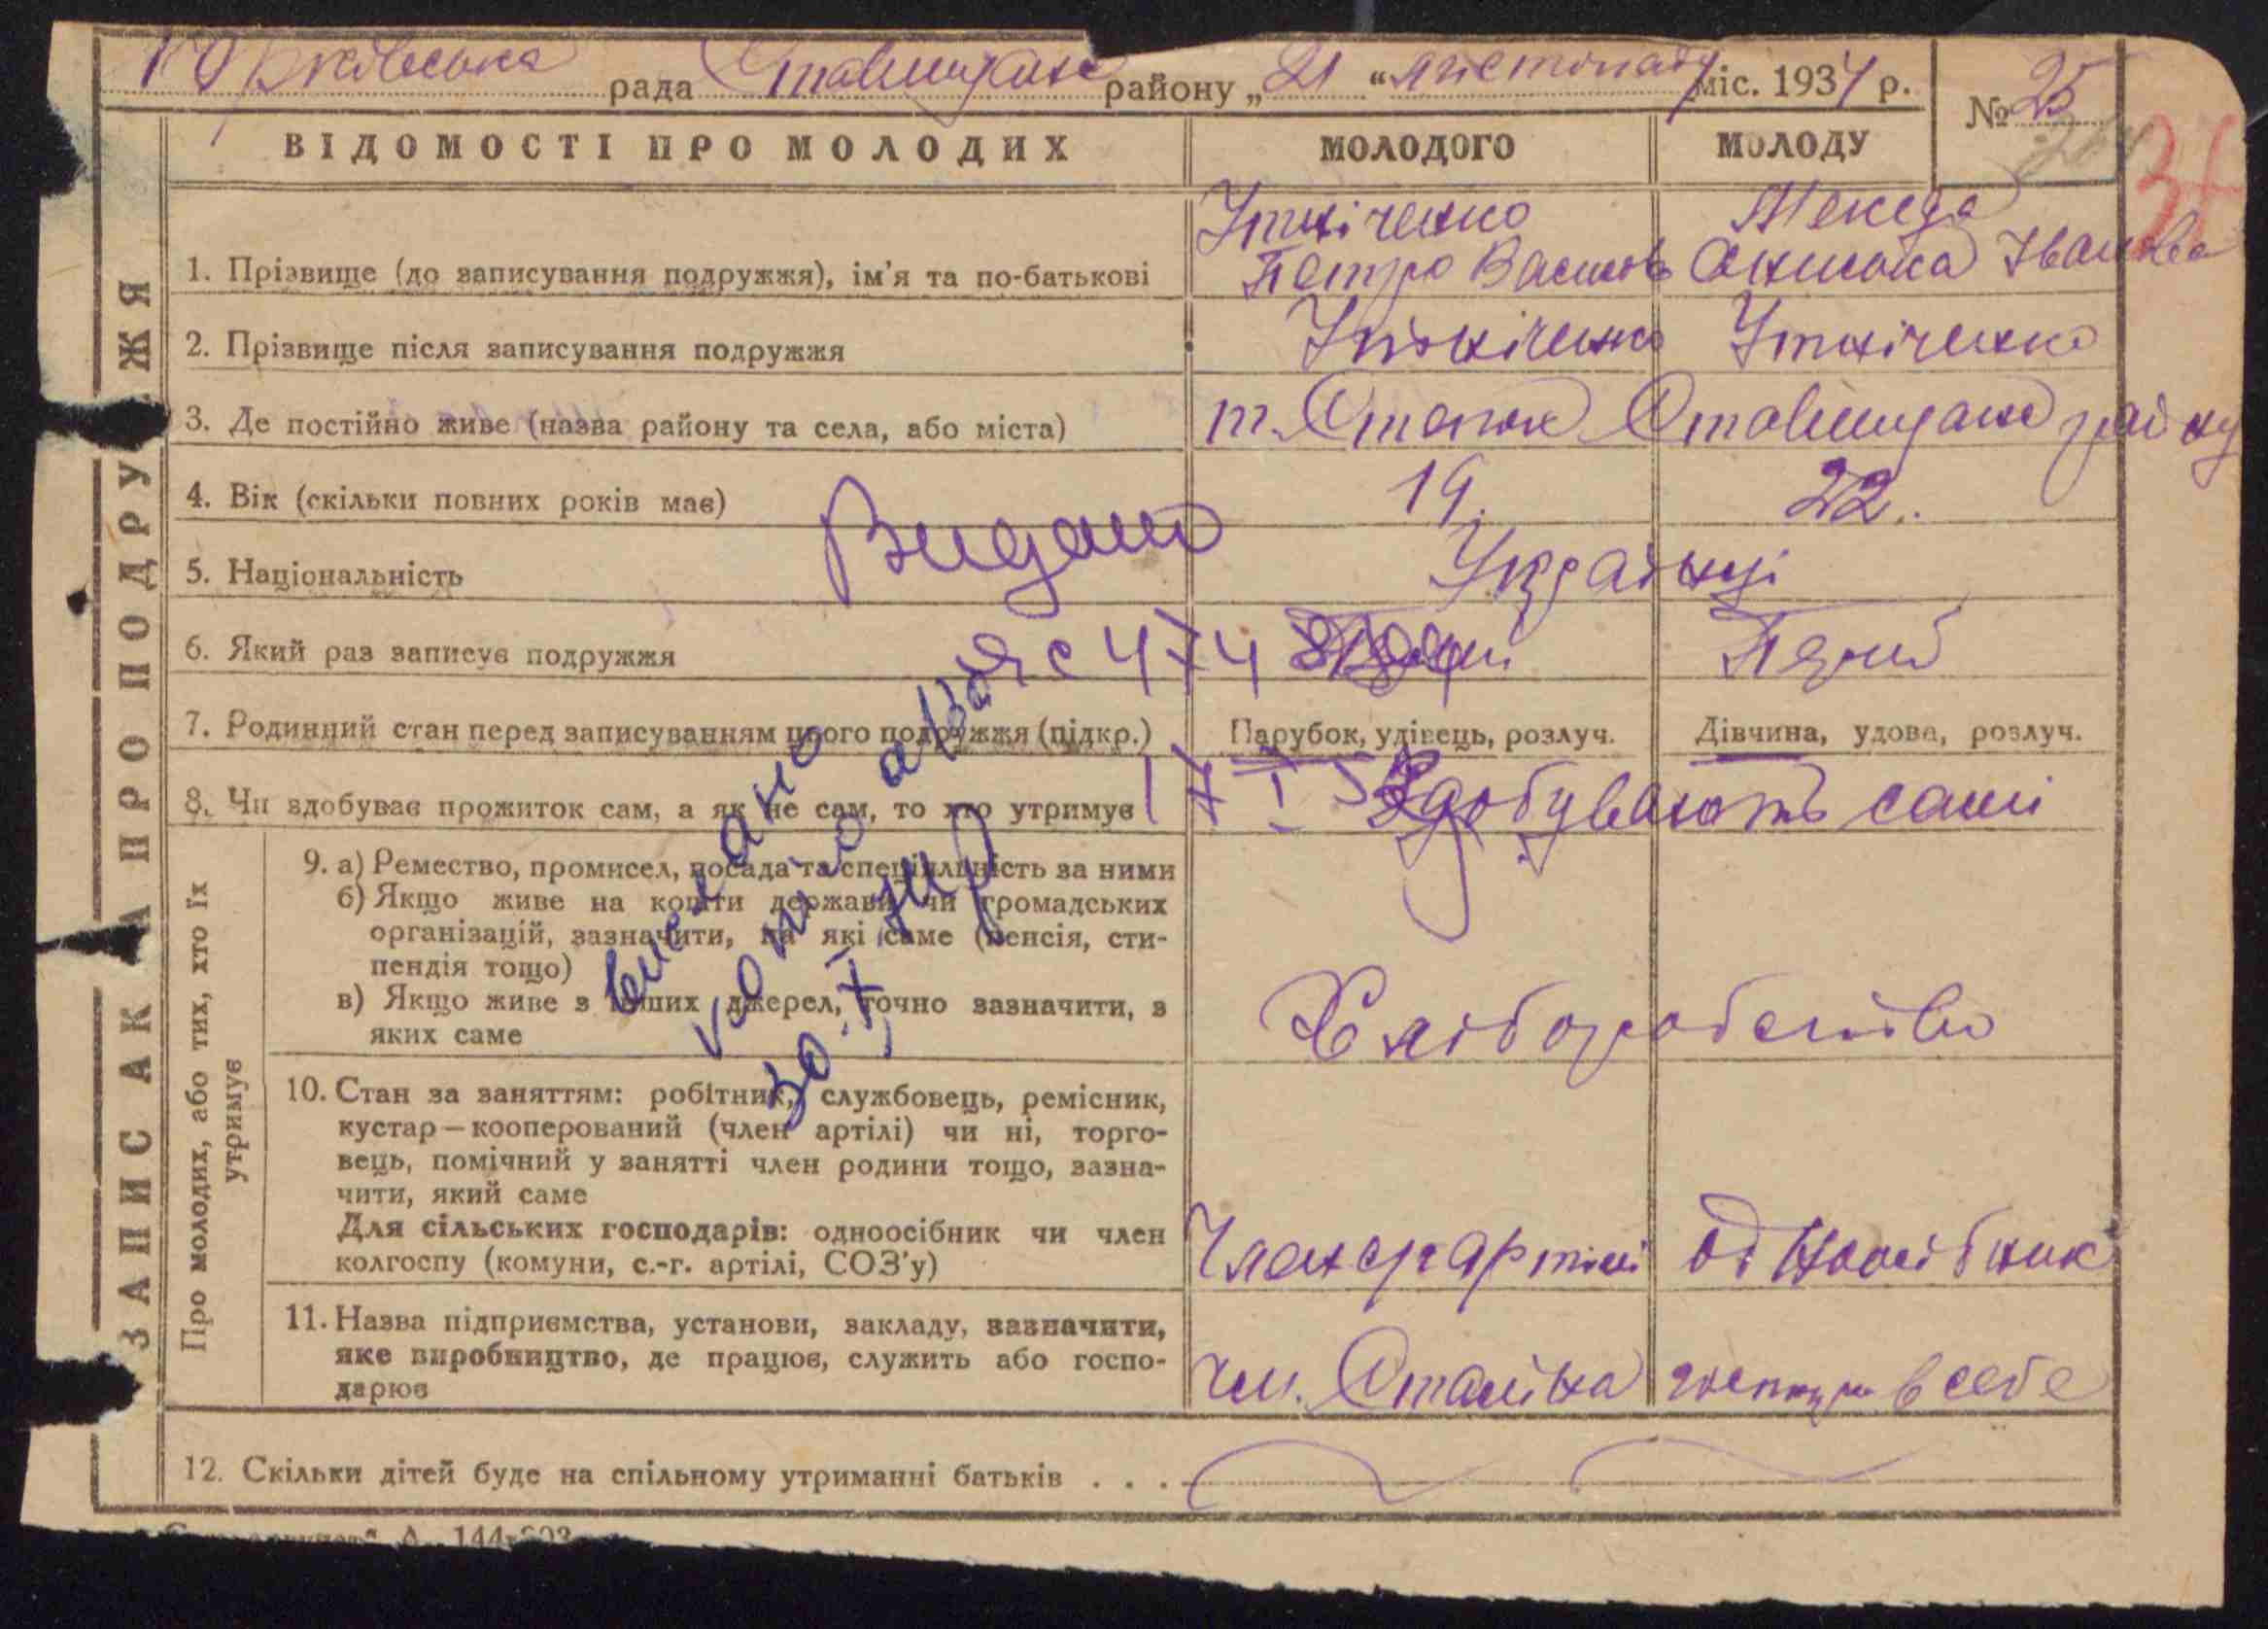 рада Ставищан району „21“ листопаду міс. 1934 р.
№ 25
ЗАПИС АКТА ПРО ПОДРУЖЖЯ
ВІДОМОСТІ ПРО МОЛОДИХ МОЛОДОГО МОЛОДУ
Утніченко Мекеда
1. Прізвище (до записування подружжя), ім'я та по-батькові Петро Васильов Ониська Іванова
2. Прізвище після записування подружжя Утніченко Утніченко
3. Де постійно живе (назва району та села, або міста) Ставищан району
4. Вік (скільки повних років має) 19. 22.
Видано
5. Національність Українці
6. Який раз записує подружжя Перш
7. Родинний стан перед записуванням цього подружжя (підкр.) Парубок, удівець, розлуч. Дівчина, удова, розлуч.
8. Чи здобуває прожиток сам, а як не сам, то хто утримує Здобувають самі
Про молодих, або тих, хто їх утримує
9. а) Ремество, промисел, посада та спеціяльність за ними
б) Якщо живе на кошти держави чи громадських
організацій, зазначити, на які саме (пенсія, сти-
пендія тощо)
в) Якщо живе з інших джерел, точно зазначити, з
яких саме Хліборобство
10. Стан за заняттям: робітник, службовець, ремісник,
кустар — кооперований (член артілі) чи ні, торго-
вець, помічний у занятті член родини тощо, зазна-
чити, який саме
Для сільських господарів: одноосібник чи член
колгоспу (комуни, с.-г. артілі, СОЗ'у) Член сг артілі одноосібник
11. Назва підприємства, установи, закладу, зазначити,
яке виробництво, де працює, служить або госпо-
дарює ім. Сталіна в себе
12. Скільки дітей буде на спільному утриманні батьків . . .